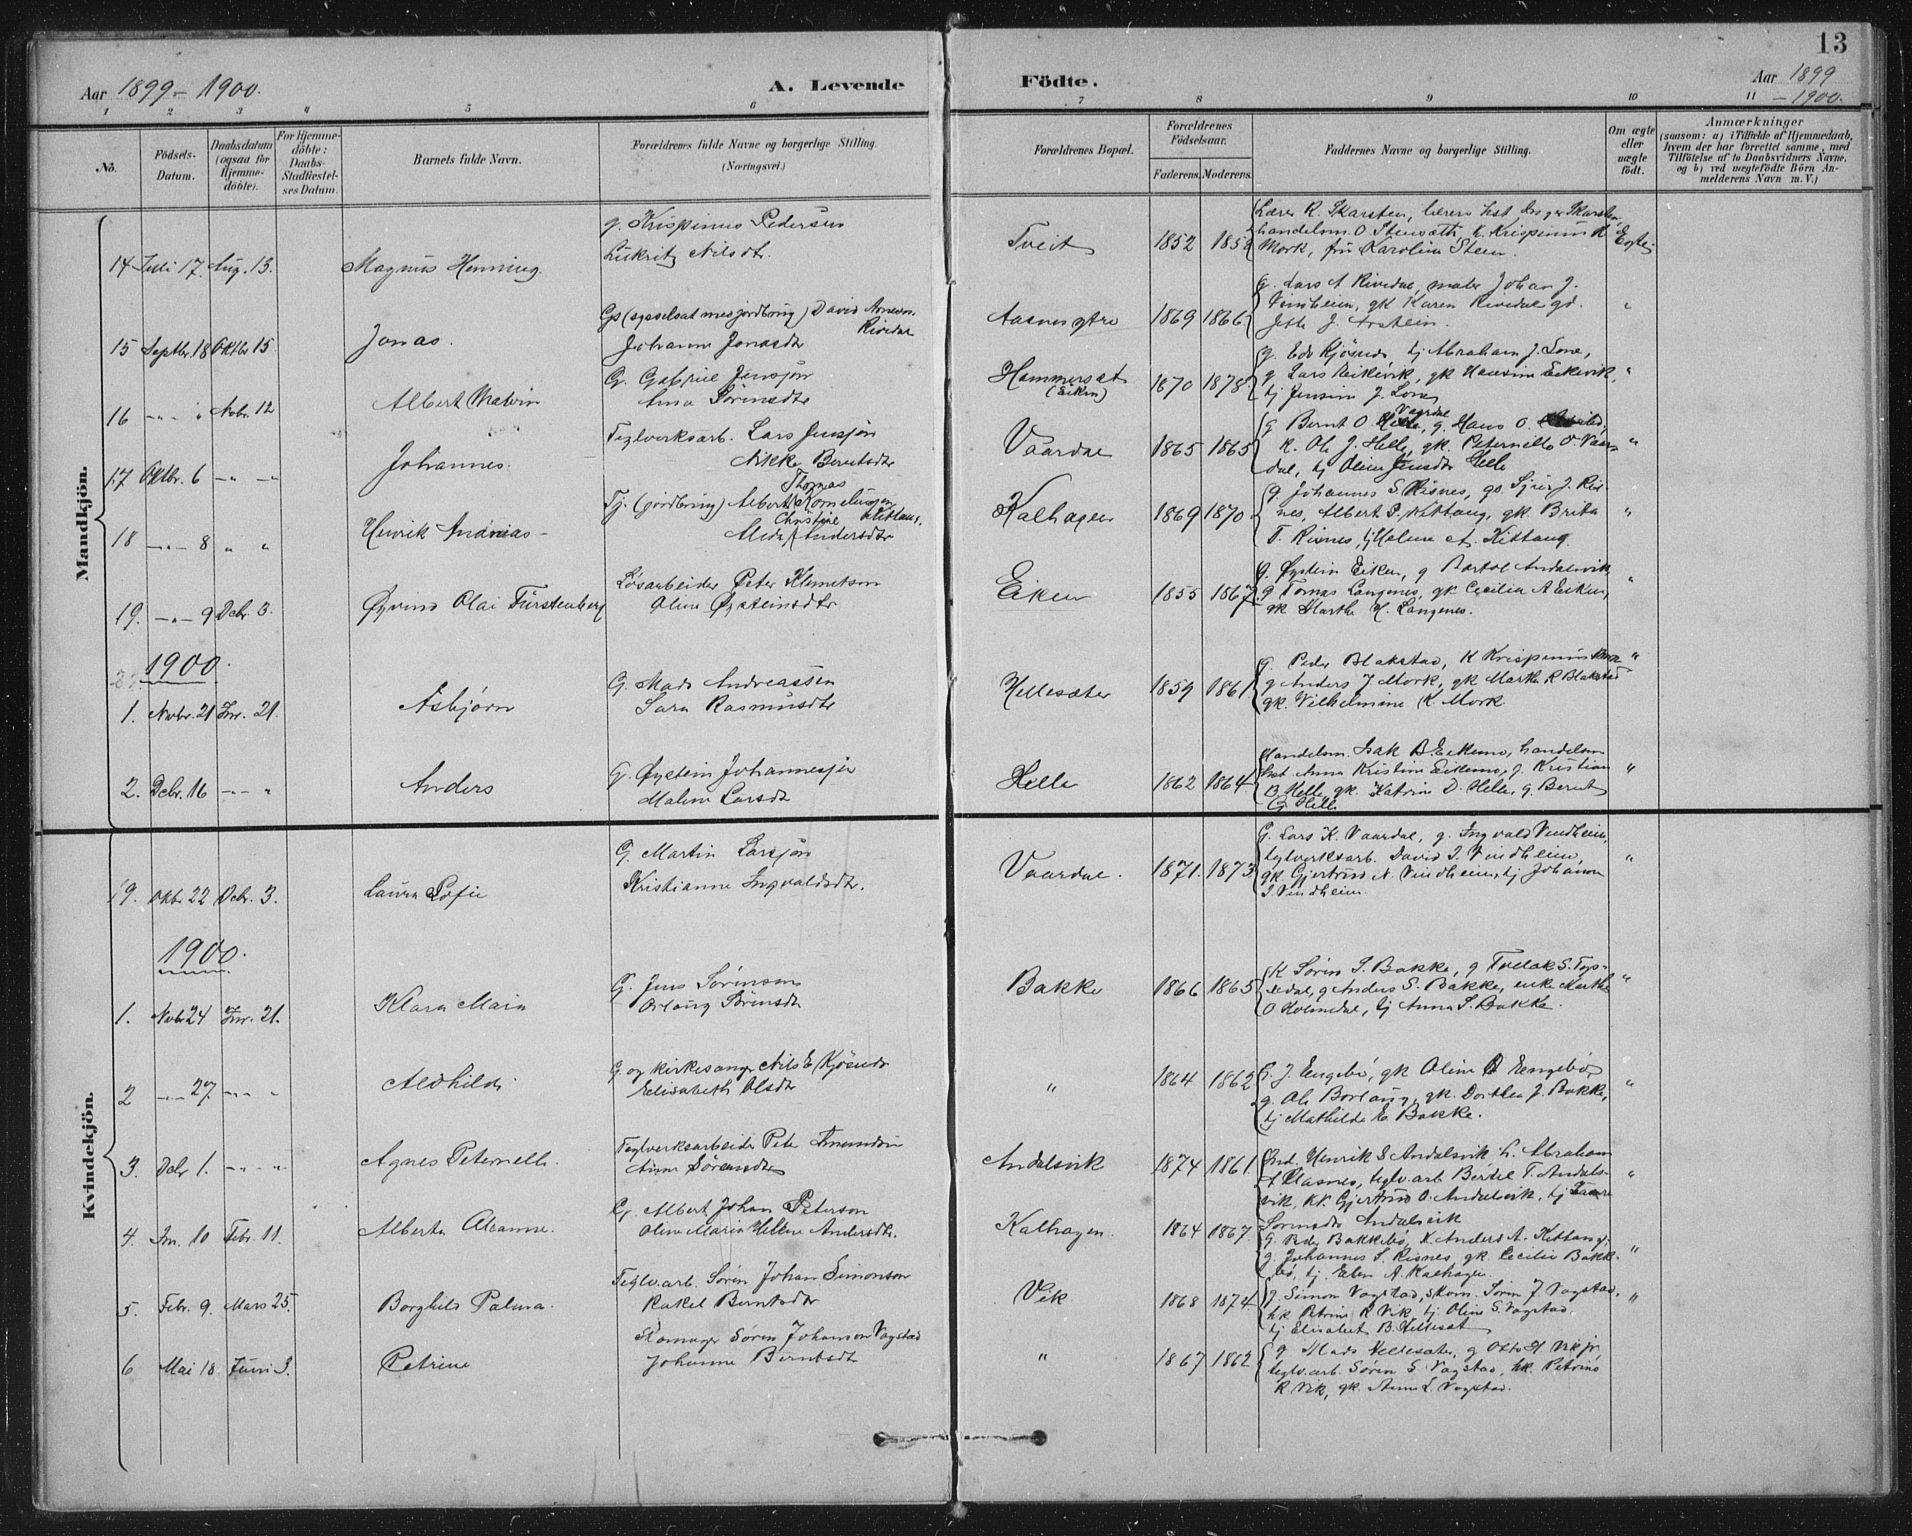 13
Aar 1899 - 1900.
A. Levende Födte.
Aar 1899 - 1900.
1 2 3 4 5 6 7 8 9 10 11
No.
Födsels-Datum.
Daabsdatum (ogsaa for Hjemme-döbte).
For Hjemme-döbte: Daabs-Stadfæstel-ses Datum.
Barnets fulde Navn.
Forældrenes fulde Navne og borgerlige Stilling. (Næringsvei.)
Forældrenes Bopæl.
Forældrenes Födselsaar.
Faderens. Moderens.
Faddernes Navne og borgerlige Stilling.
Om ægte eller uægte födt.
Anmærkninger
(saasom: a) i Tilfælde af Hjemmedaab, hvem der har forrettet samme, med Tilföielse af to Daabsvidners Navne, og b) ved uægtefödte Börn An-melderens Navn m. V.)
Mandkjön.
14 Juli 17. Aug. 13. Magnus Henning
g. Krispinus Pedersen
Nilsdt.
Tveit 1852 1852
Lærer R. Skarsten,
Mork, fru Karoline Steen.
Ægte
15 Septbr 18 Oktbr 15 Jonas.
David Arneson Rivedal
Johanne Jonasdtr
Aasnes ytre 1869 1866
G. Lars A Rivedal, maler Johan J.
Vindheim, gk Karen Rivedal gd.
"
16 — " — " Novbr. 12 Albert Malvin
G. Gabriel Jensson
Anna Sörensdtr
Hammerset (Eiken) 1870 1878
tj Abraham J. Lone,
g Lars Eikevik, gk Hansine Eikevik,
tj Jensine J. Lone
"
17 Oktbr. 6 — " — " — Johannes.
Teglverksarb. Lars Jensson
Nikka Berntsdtr
Vaardal 1865 1865
g Bernt O Vaardal, g. Hans O.
K. Ole J. Helle, gk. Peternille O Vaar-
dal, tj Oline Jensdtr Helle
"
18 — " — 8 " " Henrik Ananias -
Tj. (jordbrug) Albert Thomas Korneliussen Kittang.
Alida Christine Andersdtr
Kalhagen 1869 1870
g. Johannes S. Risnes, gs. J. Ris-
nes, Albert P. Kittang, gk. Brita
T. Risnes, tj Malene A. Kittang.
"
19. — " — 9 Dcbr 3. Øyvind Olai Fürstenberg
Løsarbeider Peter Klemetson
Oline Øysteinsdtr
Eiken 1855 1867
G. Øystein Eiken, g Bertol Andalsvik
g Tomas Langenes, gk Cecilia A Eiken,
gk Marthe H. Langenes.
"
1900.
1. Novbr. 21 Jnr. 21. Asbjørn
G. Mads Andreassen
Sara Rasmusdtr
Hellesæter 1859 1861
G. Peder Blakstad, K Krispinus
g Anders J Mork, gk Marthe R Blakstad
gk. Vilhelmine K Mork
"
2. Dcbr. 16 — " — " Anders
G. Øystein Johannesson
Malene Larsdtr
Helle 1862 1864
Handelsm. Isak B. Eikemo, handelsm-
Anna Kristine Eikemo, g. Kristian
B. Helle, gk. Katrine D. Helle, g. Bernt
G Helle
"
Kvindekjön.
19. Oktbr 22 Dcbr. 3. Laura Sofie
G. Martin Larsson
Kristianne Ingvaldsdtr.
Vaardal. 1871. 1873
G. Lars K. Vaardal, g. Ingvald Vindheim,
teglverksarb. David I. Vindheim,
gk Gjertrud N. Vindheim, tj Johanna
I. Vindheim.
"
1900.
1. Novbr 24 Jnr. 21. Klara Maria
G. Jens Sörenson
Sörensdtr
Bakke 1866 1865
K Sören S. Bakke, g
g Anders S. Bakke, enke Marthe
O Holmedal, tj Anna S. Bakke.
"
2 — " — 27 — " — " Alvhilde
G. og kirkesanger Nils E Kjösnes
Elisabeth Olsdtr
" 1864 1862
J. Engebö, gk Oline Engebö,
g. Ole Borlaug, gk. Dorthea J. Bakke,
tj Mathilde E. Bakke.
"
3. Dcbr 1. — " — " — Agnes Peternelle
Teglverksarbeider Peter
Anne Sörensdtr
Andalsvik 1874 1861
Ind. Henrik S Andalsvik L. Abraham
Aasnes, teglv.arb Bertel T. Andals-
vik, KK Gjertrud O. Andalsvik, tj
Sörensdtr Andalsvik
"
4. Jnr. 10 Febr. 11. Alberta
G. Albert Johan Peterson
Oline Maria Helene Andersdtr.
Kalhagen. 1864 1867
G. Peder Bakkebö, K. Anders A. Kittang,
g. Johannes S. Risnes, gk. Cecilie Bakke-
bö, tj. Elen A. Kalhagen.
"
5. Febr. 9. Mars 25. Borghild Palma.
Teglv.arb. Sören Johan Simonson
Rakel Berntsdtr
Vik 1868 1874
g. Simon Vagstad, skom. Sören J Vagstad,
hk Petrine R Vik, tj Oline S. Vagstad.
tj Elisabet B. Helleset
"
6 Mai 18. Juni 3. Petrine
Skomager Sören Johanson Vagstad
Johanne Berntsdtr
" 1867 1862
g Mads Hellesæter, g Vik jr,
teglv.arb. Sören S Vagstad, hk. Petrine
R. Vik, gk. Anne L. Vagstad.
"